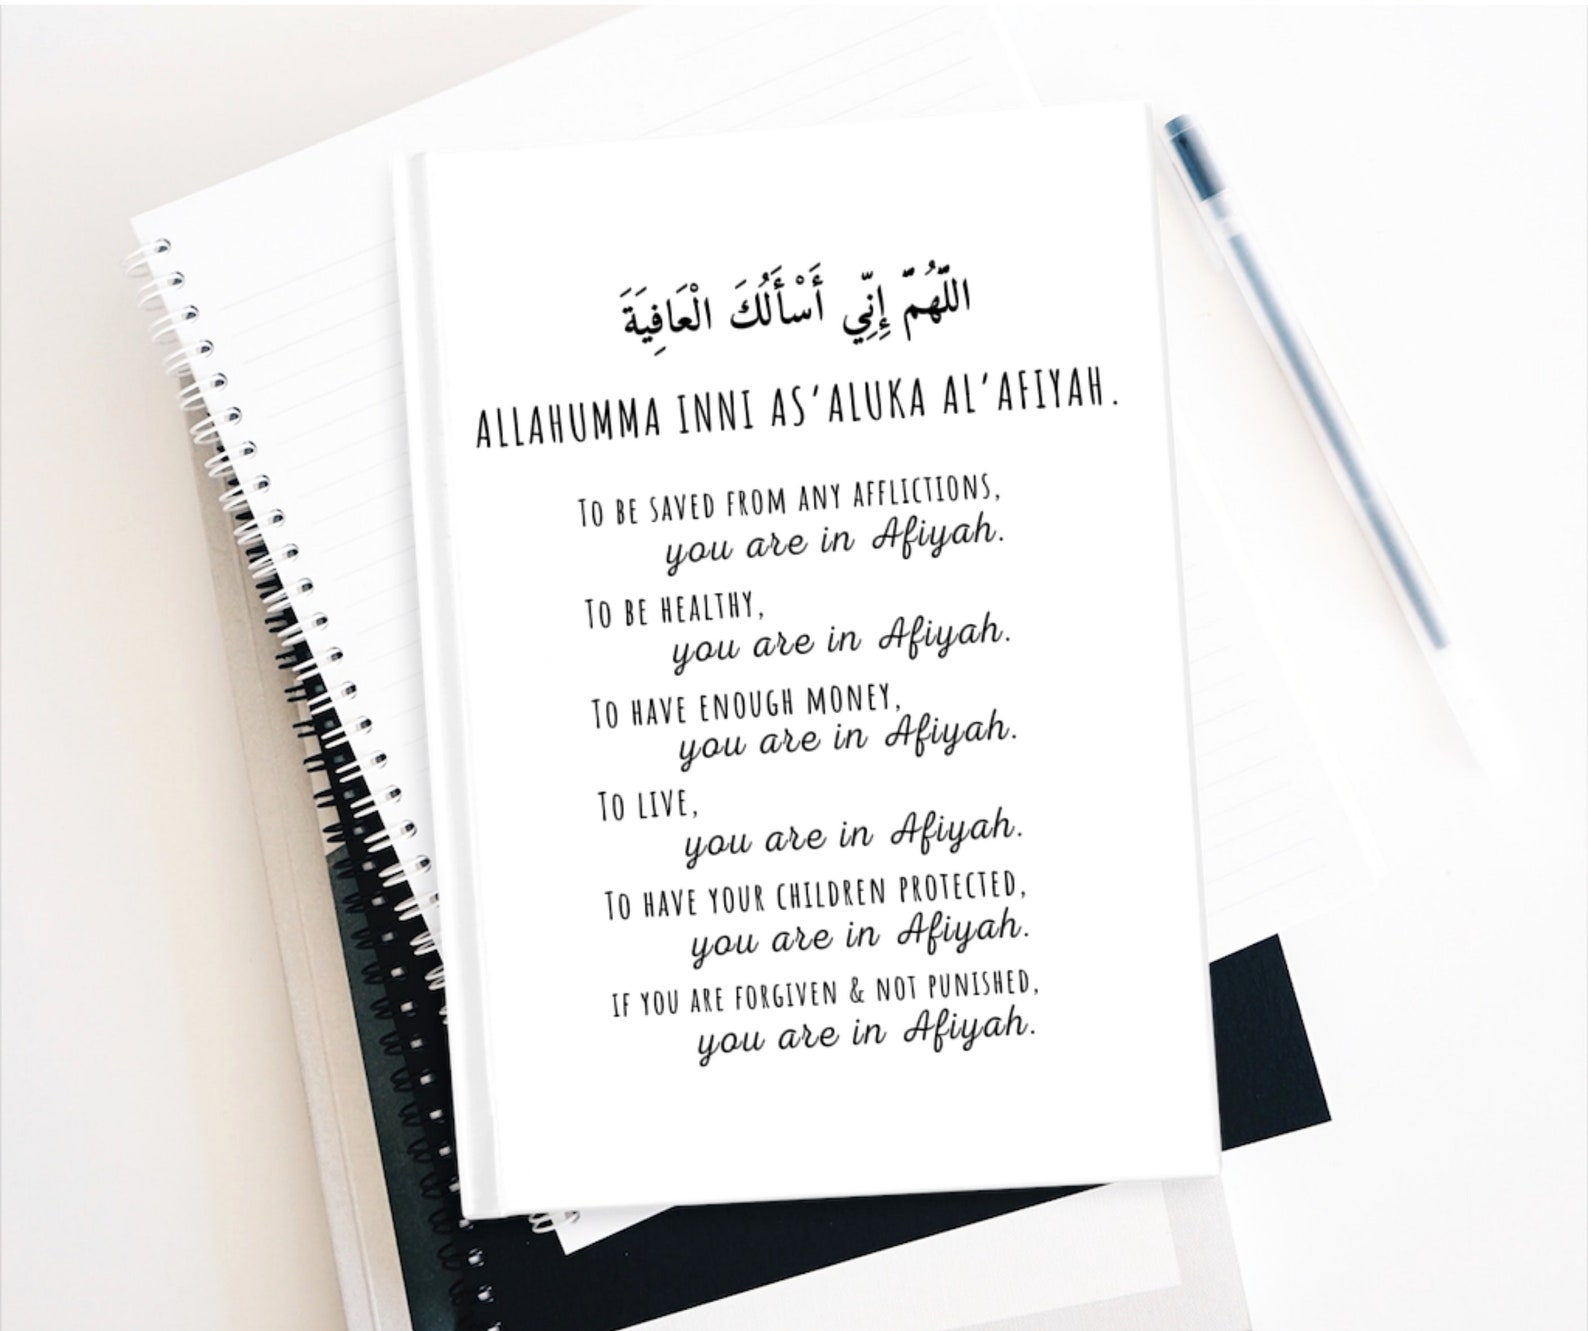 اللَّهُمَّ إِنِّي أَسْأَلُكَ الْعَافِيَةَ
ALLAHUMMA INNI AS'ALUKA AL'AFIYAH.
TO BE SAVED FROM ANY AFFLICTIONS,
you are in Afiyah.
TO BE HEALTHY,
you are in Afiyah.
TO HAVE ENOUGH MONEY,
you are in Afiyah.
TO LIVE,
you are in Afiyah.
TO HAVE YOUR CHILDREN PROTECTED,
you are in Afiyah.
IF YOU ARE FORGIVEN & NOT PUNISHED,
you are in Afiyah.